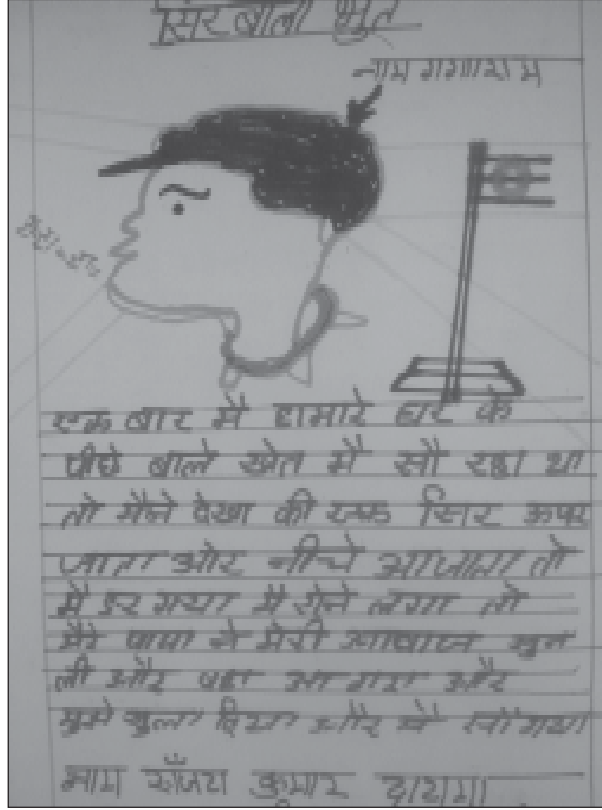 सिर बाला भुत
नाम गंगाराम
एक बार मै हामारे घर के
पीछे बाले खेत मै सौ रहा था
तो मैने देखा की एक सिर ऊपर
जाता ओर नीचे आजाता तो
मै डर गया मै रोने लगा तो
मेरे पापा ने मेरी आवाज सुन
ली और वहा आ गए और
मुझे सुला दिया और मै सो गया
नाम संजय कुमार